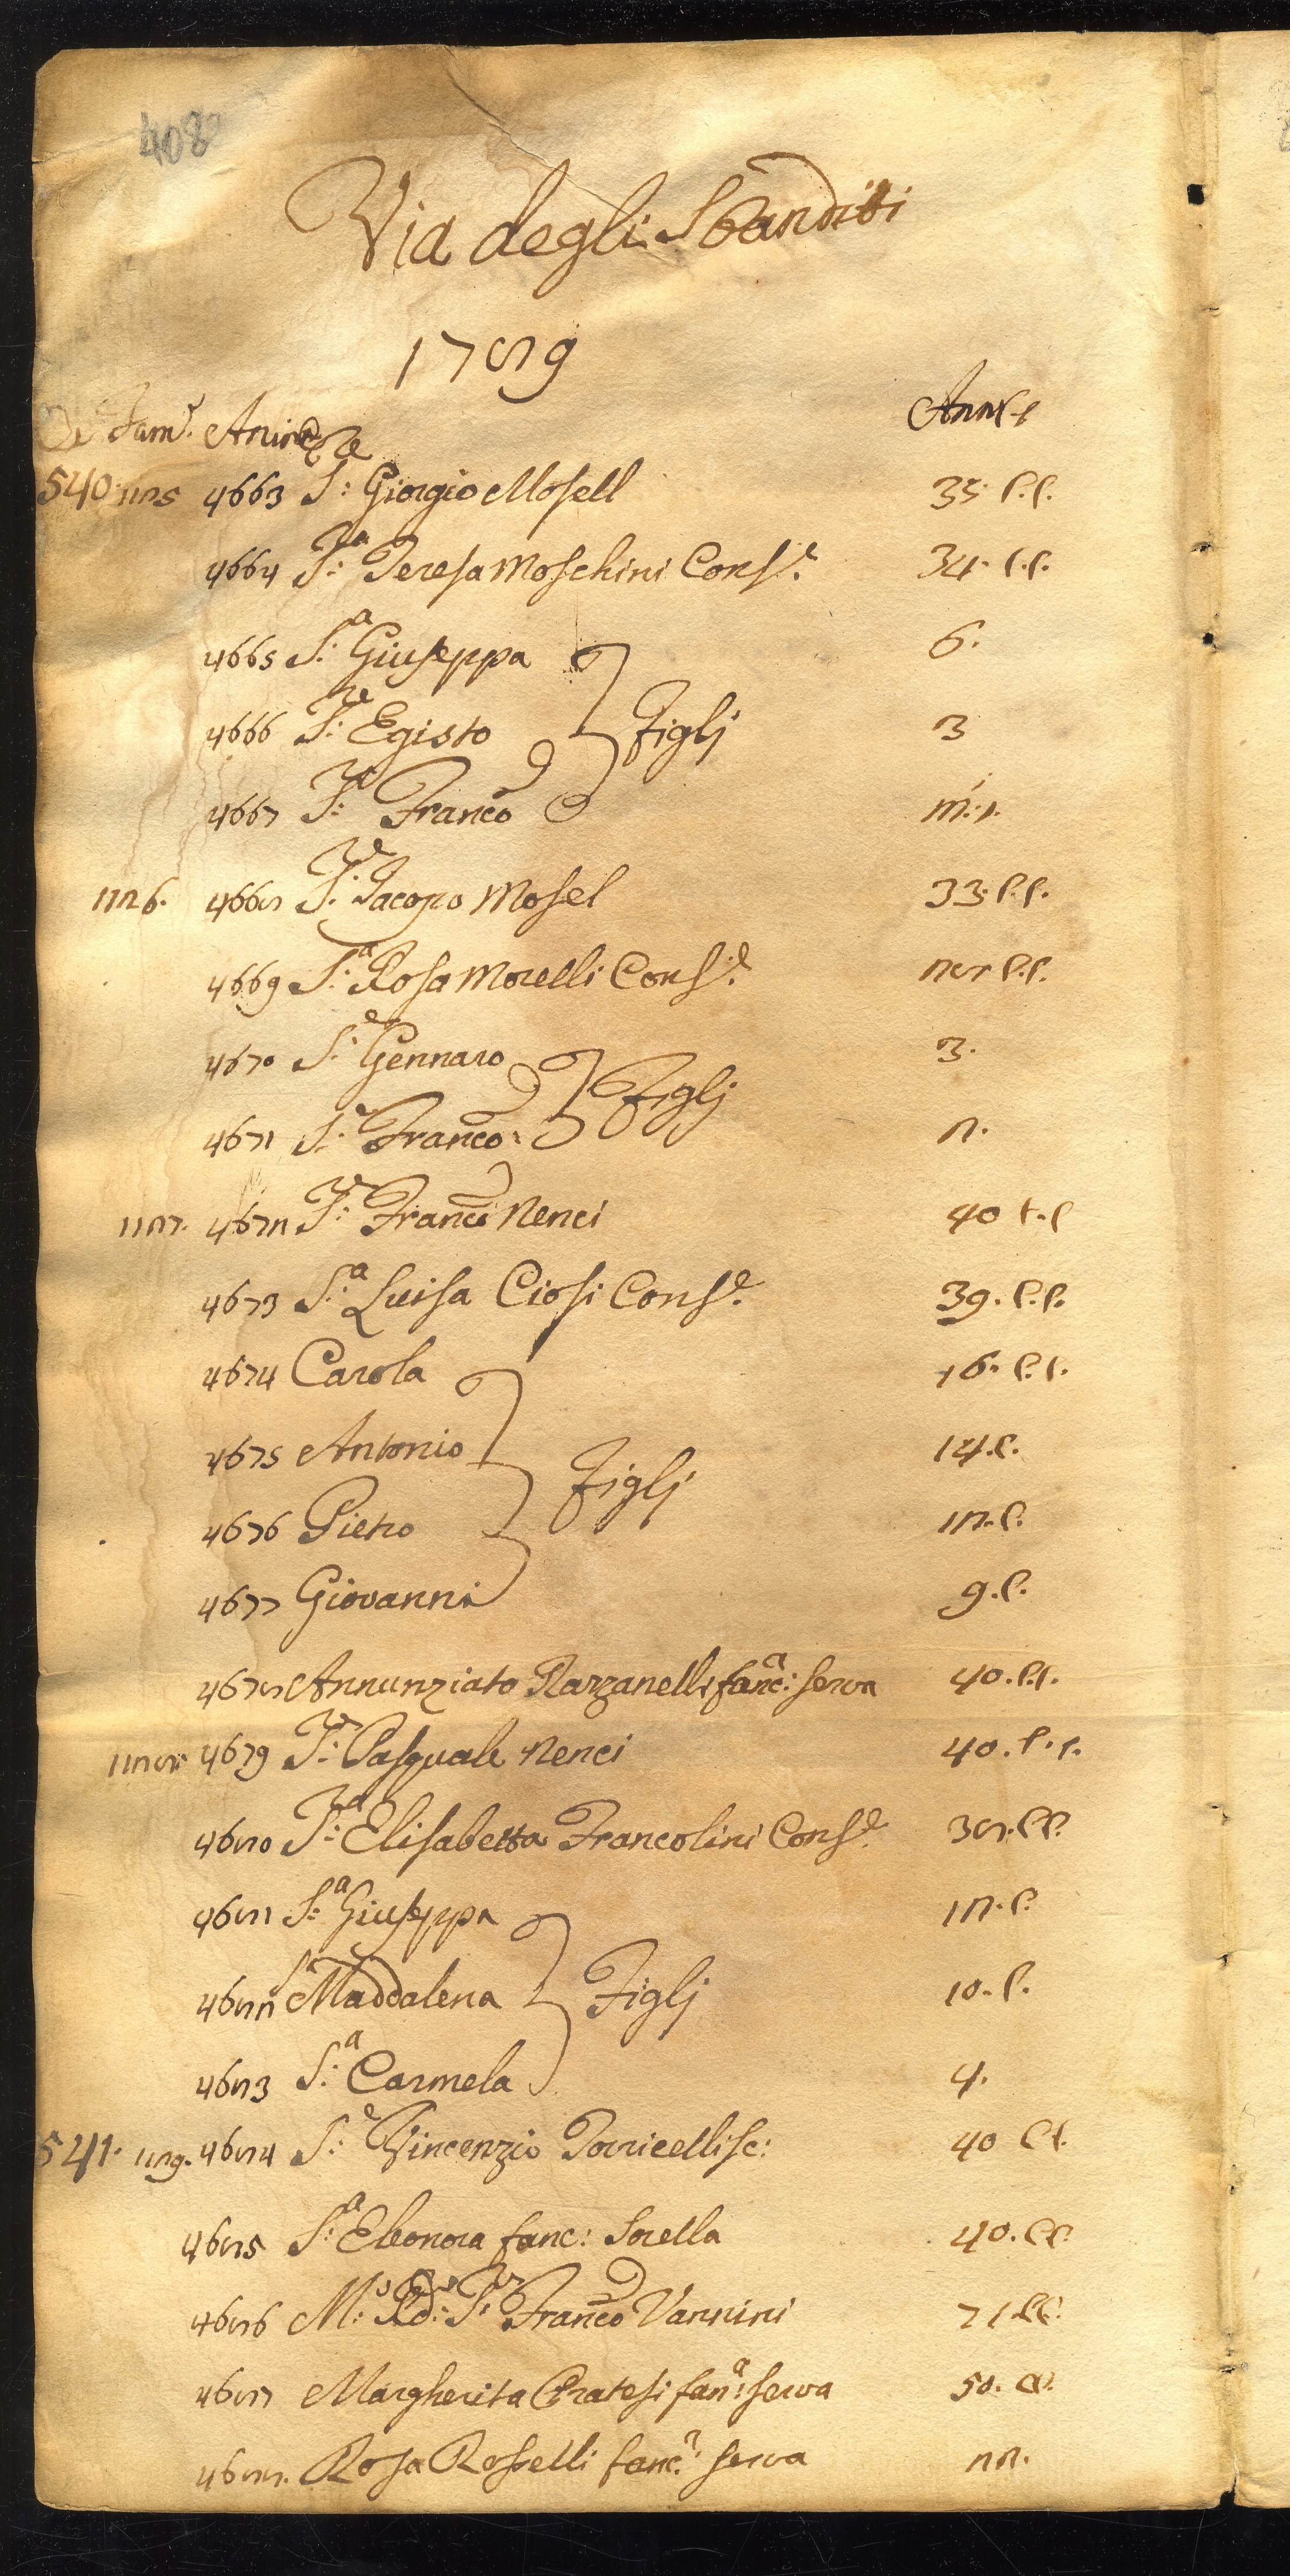 408
Via degli Sbanditi
1789
Case Fam.e Anime Anni
540 1125 4663 S.e Giorgio Mosell 35. C.C.
4664 S.a Teresa Moschini Cons.e 34. C.C.
4665 S.a Giuseppa 6.
4666 S.e Egisto Figlj 3
4667 S.e Franco m. 1.
1126. 4668 S.e Jacopo Mosel 33. C.C.
4669 S.a Rosa Morelli Cons.e 28 C.C.
4670 S.e Gennaro Figlj 3.
4671 S.e Franco 2.
1127. 4672 S.e Franco Nenci 40 C.C
4673 S.a Luisa Ciosi Cons.e 39. C.C.
4674 Carola 16. C.C.
4675 Antonio Figlj 14. C.
4676 Pietro 12. C.
4677 Giovanni 9. C.
4678 Annunziata Razzanelli fanc.a: serva 40. C.C.
1128 4679 S.e Pasquale Nenci 40. C.C.
4680 S.a Elisabetta Francolini Cons.e 38. C.C.
4681 S.a Giuseppa 12. C.
4682 S.a Maddalena Figlj 10. C.
4683 S.a Carmela 4.
541. 1129. 4684 S.e Vincenzio Torricelli sc: 40 C.C.
4685 S.a Eleonora fanc: Sorella 40. C.C.
4686 M.o Rd.o S.e Franco Vannini 71 C.C.
4687 Margherita Pratesi fan.a: serva 50. C.C.
4688. Rosa Rosselli fanc.a: serva 22.